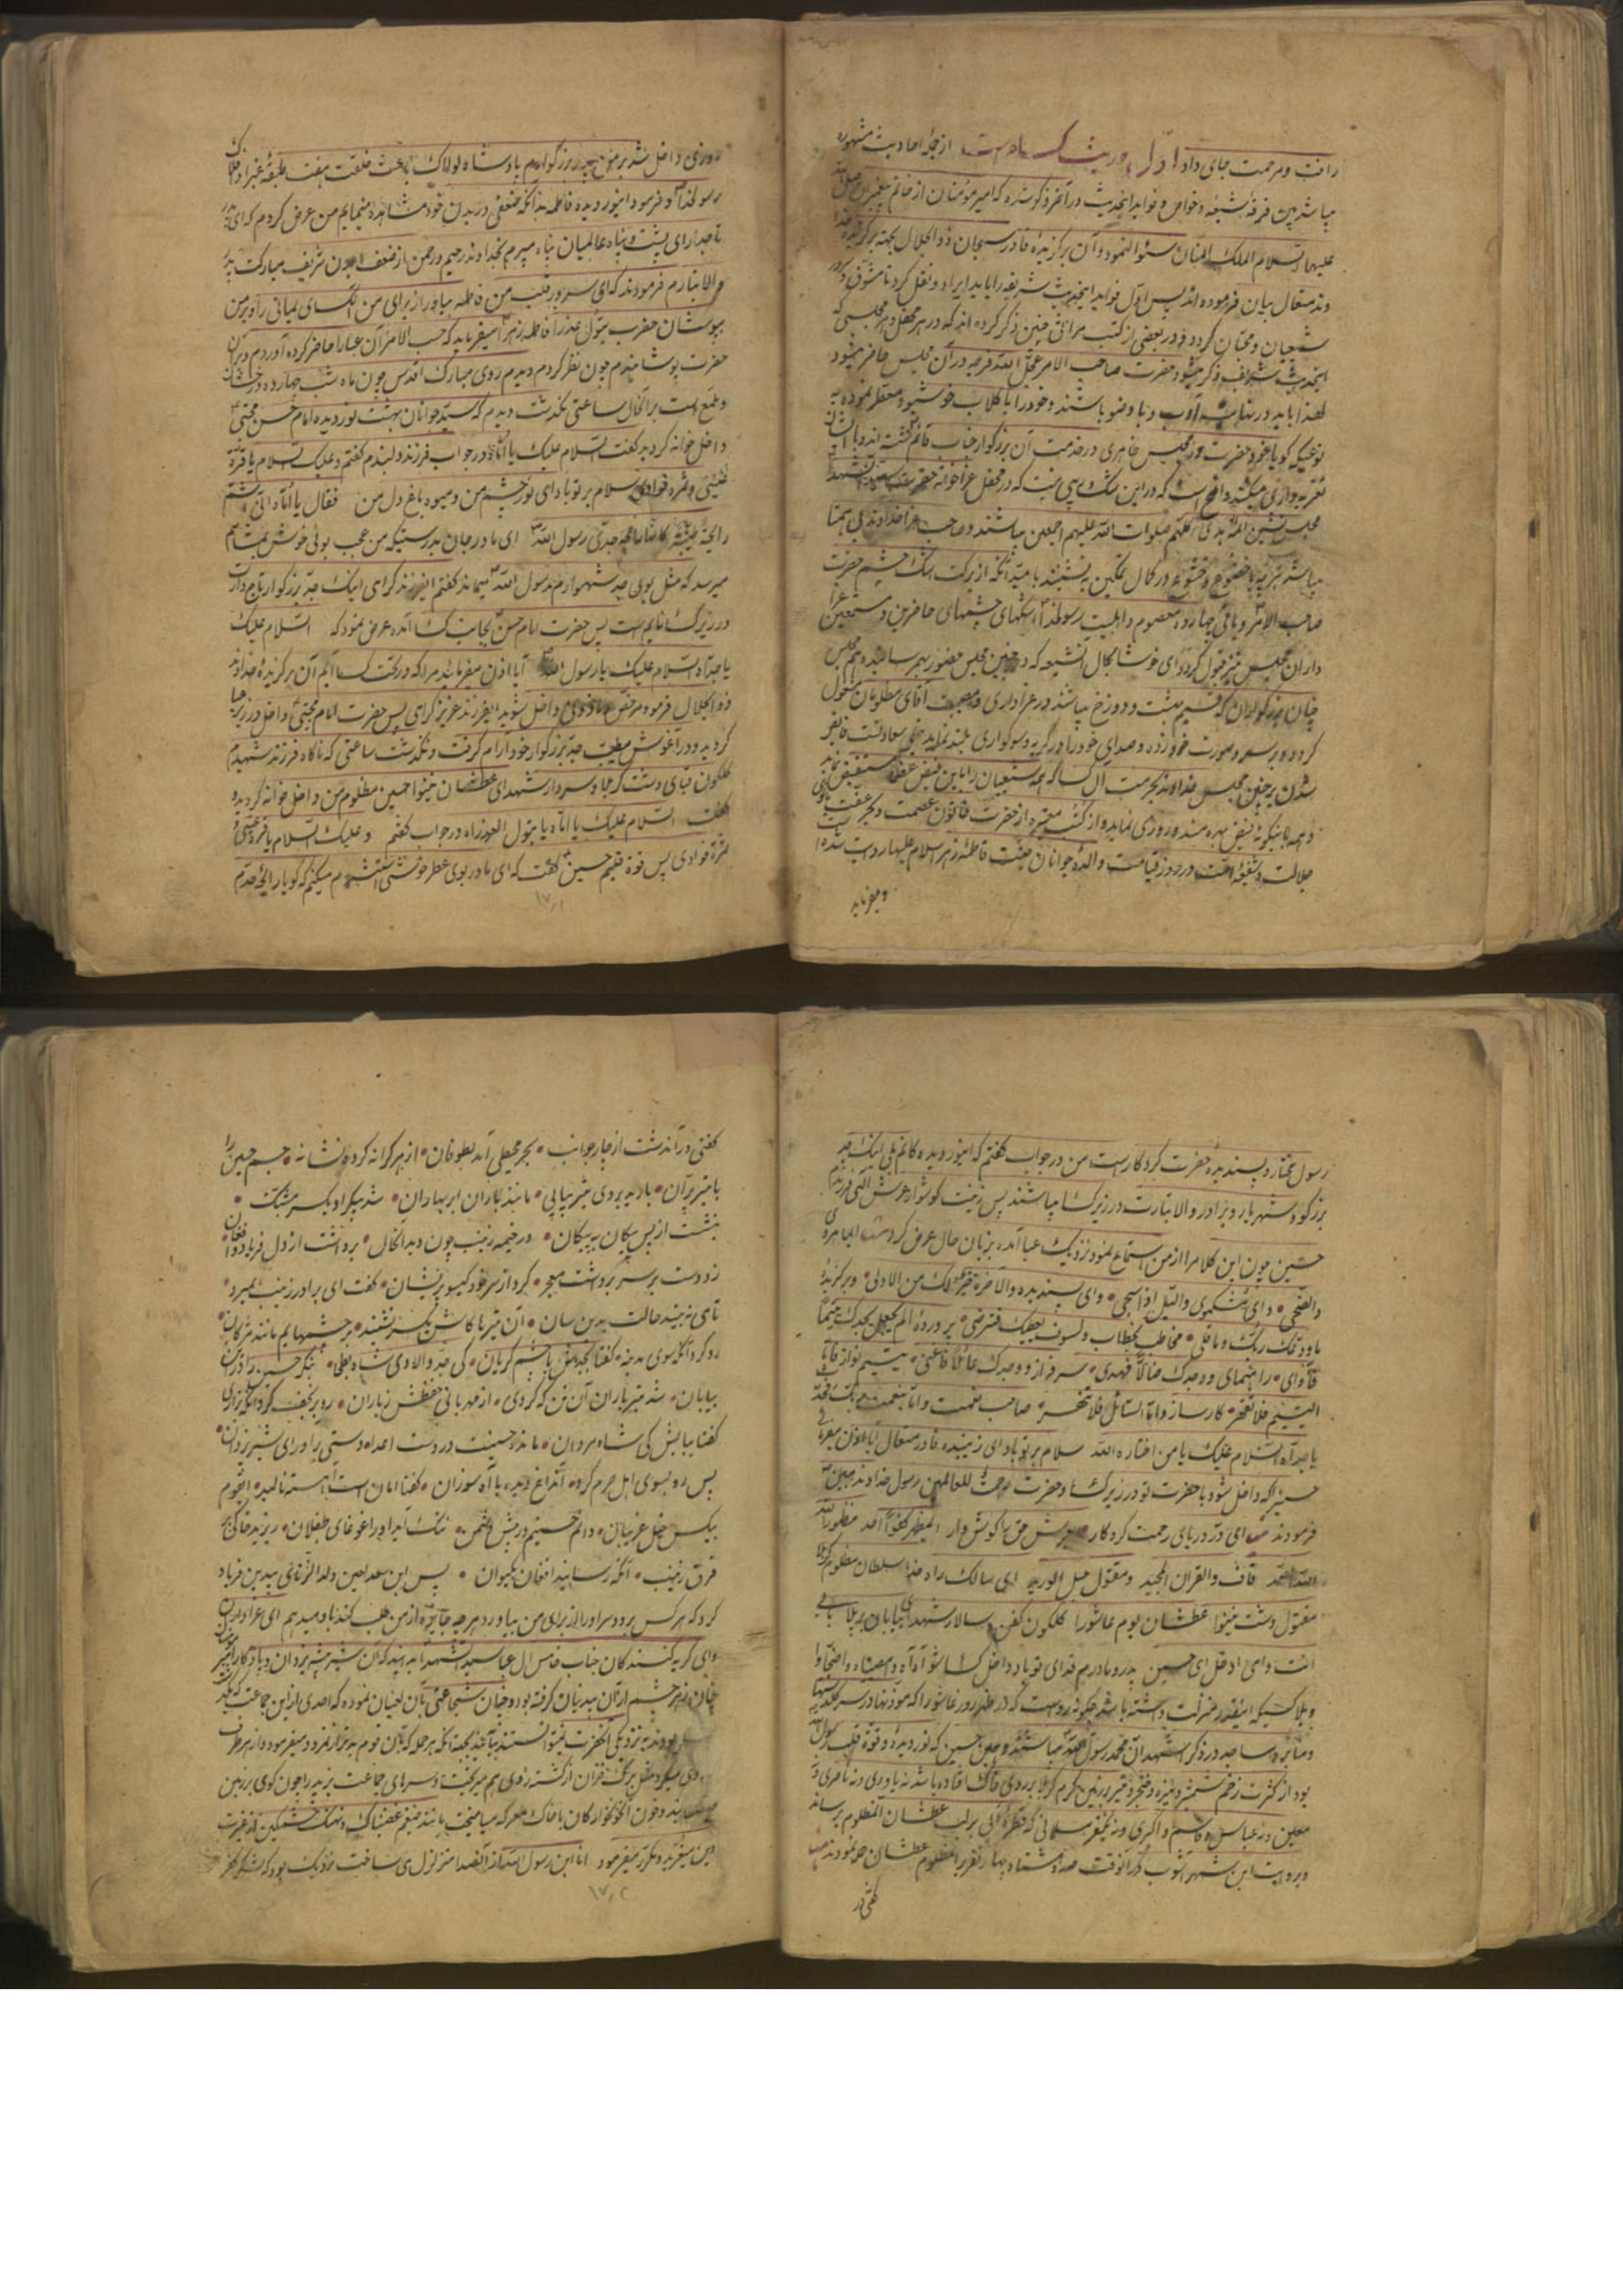 رافت و مرحمت جای داد اول حدیث کساء است از جمله احادیث مشهوره
میباشد بین فرقهٔ شیعه و خواص و فواید اینحدیث در آخر ذکر شده که امیر مؤمنان از خاتم پیغمبران
علیهما السلام الملک المنان سئوال نمود و آن برگزیدهٔ قادر سبحان ذو الجلال بجهة برگزیدهٔ
وند متعال بیان فرموده اند پس اول فواید اینحدیث شریفه را باید ایراد و نقل کرد تا مشوق
شیعیان و محبان گردد و در بعضی از کتب مراثی چنین ذکر کرده اند که در هر محفل و هر مجلسی که
اینحدیث شریف ذکر میشود حضرت صاحب الامر عجل الله فرجه در آن مجلس حاضر میشود
لهذا باید در نهایت آدب و با وضو باشند و خود را با گلاب خوشبو و معطر نموده به
نوعیکه گویا خود حضرت در مجلس ظاهری در خدمت آن بزرگوار جناب قائم گشته اند و با ایشان
تعزیه داری میکنند واضح است که در این شک و ریبی نیست که در محفل عزاخوانه حضرت سید الشهدا
مجلس نشین ائمه هدی کلهم صلوات الله علیهم اجمعین میباشند و صاحب عزا خداوند بی همتا
میباشد پس باید با خضوع و خشوع در کمال تمکین به نشینند با میدانکه از برکت اشک چشم حضرت
صاحب الامر و باقی چهارده معصوم و اهلبیت رسولخدا اشکهای چشمهای حاضرین و مستمعین
داران مجلس نیز قبول گردد ای خوشا بحال آنشیعه که در چنین مجلس حضور بهم رسانیده و هم مجلس
چنان بزرگواران که قسیم بهشت و دوزخ میباشند در عزاداری و مصیبت آقای مظلومان مشغول
گردد و بر سر و صورت خود زده و صدای خود را در گریه و سوگواری بلند نماید خیلی سعادتست فایض
شدن بر چنین مجلس خداوند بحرمت آل کسا که همه شیعیان را باین فیض عظمی مستفیض نماید
و همه باینگونه فیض بهره مند و روزی نماید و از کتب معتبره از حضرت خاتون عصمت و عفت
جلالت و شفیعهٔ امت در روز قیامت والدهٔ جوانان جنت فاطمهٔ زهرا سلام علیها روایت شده
و میفرماید
روزی داخل شد بر من پدر بزرگوارم پادشاه لولاک باعث خلقت هفت طبقهٔ غبرا و افلاک
رسولخدا و فرمود اینور دیده فاطمه بدانکه ضعفی در بدن خود مشاهده مینمایم من عرض کردم که ای پدر
تاجدار ای پشت و پناه عالمیان پناه میبرم بخداوند رحیم و رحمن از ضعف بدن شریف مبارکت پدر
والاتبارم فرمودند که ای سرور قلب من فاطمه بیاور از برای من کسای یمانی را و بر من
بپوشان حضرت بتول عذرا فاطمه زهرا میفرماید که حسب الامر آن عبا را حاضر کرده آوردم و بر آن
حضرت پوشانیدم چون نظر کردم دیدم روی مبارک اقدس چون ماه شب چهارده درخشان
و لمع است بر آنحال ساعتی نگذشت دیدم که سید جوانان بهشت نور دیده امام حسن مجتبی
داخل خوانه گردید گفت السلام علیک یا اماه در جواب فرزند دلبندم گفتم و علیک السلام یا قرة
عینی و ثمرة فوادی سلام بر تو باد ای نور چشم من و میوه باغ دل من فقال یا اماه انی اشم
رایحة طیبة کانها رایحة جدی رسول الله ای مادر جان بدرستیکه من عجب بوئی خوش بمشامم
میرسد که مثل بوی جد شهریارم رسول الله میماند گفتم ایفرزند گرامی اینک جد بزرگوار تاجدارت
در زیر کسا نایم است پس حضرت امام حسن بجانب کسا آمده عرض نمود که السلام علیک
یا جداه السلام علیک یا رسول الله آیا اذن میفرمائید مرا که در تحت کسا آیم آن برگزیدهٔ خداوند
ذو الجلال فرمود مرخص و ماذونی داخل شوید ایفرزند عزیز گرامی پس حضرت امام مجتبی داخل در زیر عبا
گردید و در آغوش مطیب جد بزرگوار خود آرام گرفت و نگذشت ساعتی که ناگاه فرزند شهیدم
گلگون قبای دشت کربلا و سردار شهدای عطشان نینوا حسین مظلوم من داخل خوانه گردید و
گفت السلام علیک یا اماه یا بتول العذراء در جواب گفتم و علیک السلام یا قرة عینی و
ثمرة فوادی پس قوة قلبم حسین گفت که ای مادر بوی عطر خوشی استشمام میکنم که گویا رایحهٔ جدم
۱۷٫۲
رسول مختار و پسندیدهٔ حضرت کردگار است من در جواب گفتم که اینور دیده کانم بلی اینک جد
بزرگوار شهریار و برادر والاتبارت در زیر کسا میباشند پس زینت گوشوار عرش الهی فرزندم
حسین چون این کلام را از من استماع نمود نزدیک عبا آمده بزبان حال عرض کرد ای ماهرو
والضحی وای مشکموی واللیل اذا سجی وای پسندیده وللاخرة خیر لک من الاولی و برگزیدهٔ
ما ودعک ربک وما قلی مخاطب بخطاب ولسوف یعطیک فترضی پروردهٔ الم یجدک یتیما
فآوی راهنمای ووجدک ضالا فهدی سرفراز ووجدک عائلا فاغنی یتیم نواز فاما
الیتیم فلا تقهر کارساز واما السائل فلا تنهر صاحب نعمت واما بنعمت ربک فحدث
یا جداه السلام علیک یا من اختاره الله سلام بر تو باد ای زیبنده قادر متعال آیا اذن میفرمائی
حسین را که داخل شود با حضرت تو در زیر کسا و حضرت رحمة للعالمین رسول خداوند مبین
فرمودند ای در دریای رحمت کردگار عرش حق را گوشوار
الله الصمد قاف والقران المجید و مقتول حبل الورید ای سالک راه خدا سلطان مظلوم کربلا
مقتول دشت نینوا عطشان یوم عاشورا گلگون کفن سالار شهدای بیابان پر بلا بابی
انت وامی ادخل ای حسین پدر و مادرم فدای تو باد داخل کسا شو آه آه وا مصیبتاه
کسیکه اینقدر منزلت داشته باشد چگونه رواست که در ظهر روز عاشورا که مؤذنها در سر گلدسته
و منابر و مساجد در ذکر اشهد ان محمد رسول الله میباشند و همین حسین که نور دیده و قوة قلب رسول الله
بود از کثرت زخم شمشیر و نیزه و خنجر و تیر در زمین گرم کربلا بر روی خاک افتاده باشد نه یاوری و نه ناصری و
معین و نه عباس و قاسم و اکبری و نه یکنفر مسلمانی که قطرهٔ آبی بر لب عطشان آنمظلوم برساند
و بروایت ابن شهر آشوب در آنوقت
گفتی در
گفتی در آندشت از چار جوانب بحر محیطی آمد بطوفان از هر کرانه کرده نشانه جسم حسین را
با تیر پران بارید بر وی تیر پیاپی مانند باران ابر بهاران شد پیکر او یکسر مشبک
بنشست از بس پیکان به پیکان در خیمه زینب چون دید آنحال برداشت از دل فریاد و افغان
زد دست بر سر برداشت معجر کرد از سر خود گیسو پریشان گفت ای برادر زینب بمیرد
تا می نبیند حالت بدین سان آن تیرها کاش یکسر نشیند بر چشمهایم مانند مژگان
رو کرد آنگه سوی مدینه گفتا بجدش با چشم گریان کی جد والا وی شاه بطحا بنگر حسین را در این
بیابان شد تیر باران آن تن که کردی از مهربانی حفظش ز باران رو بر نجف کرد آنگه بزاری
گفتا ببابش کی شاه مردان مانده حسینت در دست اعدا دستی برآور ای شیر یزدان
پس رو بسوی اهل حرم کرد آنداغ دیده با آه سوزان گفتا امان است آهسته نالید ایقوم
بیکس خیل غریبان دانم حسینم در پیش دشمن ننگ آید او را غوغای طفلان ریزید خاکی بر
فرق زینب آنگه رسانید افغان بکیوان پس ابن سعد لعین ولد الزنای بیدین فریاد
کرد که هر کس برود سر او را از برای من بیاورد هر چه جایزه از من طلب کند باو میدهم ای عزاداران
وای گریه کنندگان جناب خامس آل عبا سید الشهدا بدانید که آن شیر بیشهٔ یزدان و یادگار
چنان زهر چشم از آن بیدینان گرفته بود و چنان شجاعتی بآن لعینان نموده که احدی از این جماعت
بودند به نزدیکی آنحضرت نمیتوانستند بیایند بجهة آنکه هر حمله که بآن قوم بدتر از نمرود میفرمود و از هر طرف
روی میکرد مثل برگ خزان از کشته روی هم میریخت و سرهای جماعت یزید را چون گوی بر زمین
و خون آنخونخوارگان با خاک معرکه میآمیخت مانند ضیغم غضبناک و نهنگ خشمگین از غیرت
دین میغرید و مکرر میفرمود انا ابن رسول الله از آنصدا متزلزل می ساخت نزدیک بود که لشکر کفر
۱۷٫۲